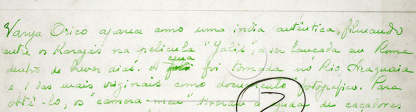 Vanja Orico aparece como uma india autêntica, filmando
entre os Karajás na pelicula "Yalis", a ser lançada em Roma
dentro de breves dias. A cena foi tomada no Rio Araguaia
e é das mais originais como documento fotografico. Para
obtê-lo, os "camera-men" tiveram a ajuda de caçadores